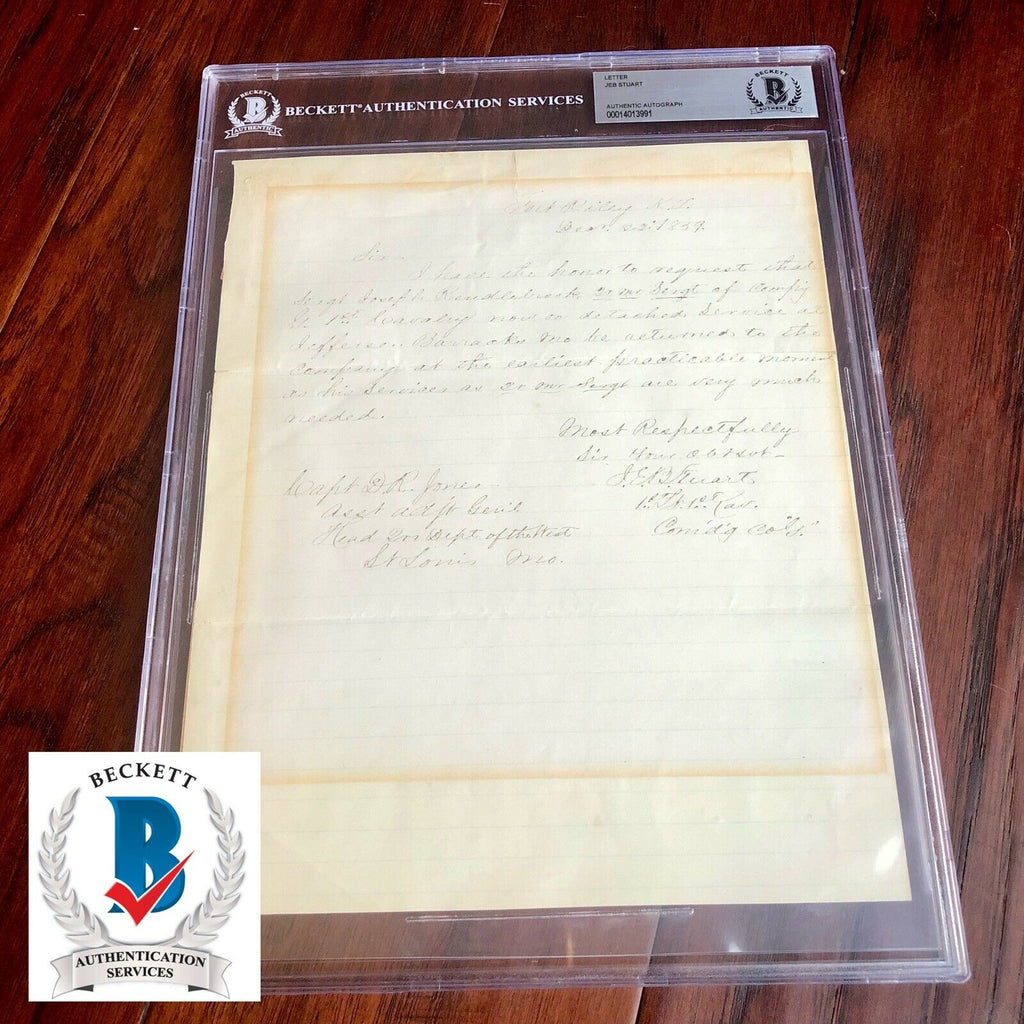 BECKETT
B
AUTHENTIC
BECKETT AUTHENTICATION SERVICES
LETTER
JEB STUART
AUTHENTIC AUTOGRAPH
00014013991
BECKETT
B
AUTHENTIC
Fort Riley K.T.
Decr. 22d 1859.
Sir
I have the honor to request that
Sergt Joseph qr mr Sergt of Comp'y
G. 1st Cavalry now on detached service at
Jefferson Barracks Mo be returned to the
company at the earliest practicable moment
as his services as qr mr Sergt are very much
needed.
Most Respectfully
Sir Your Obt svt
J.E.B Stuart
1st Lt. 1st Cav.
Com'd'g Co "G."
Capt D.R. Jones
Asst Adjt Genl
Head Qrs Dept. of the West
St Louis Mo.
BECKETT
B
AUTHENTICATION
SERVICES